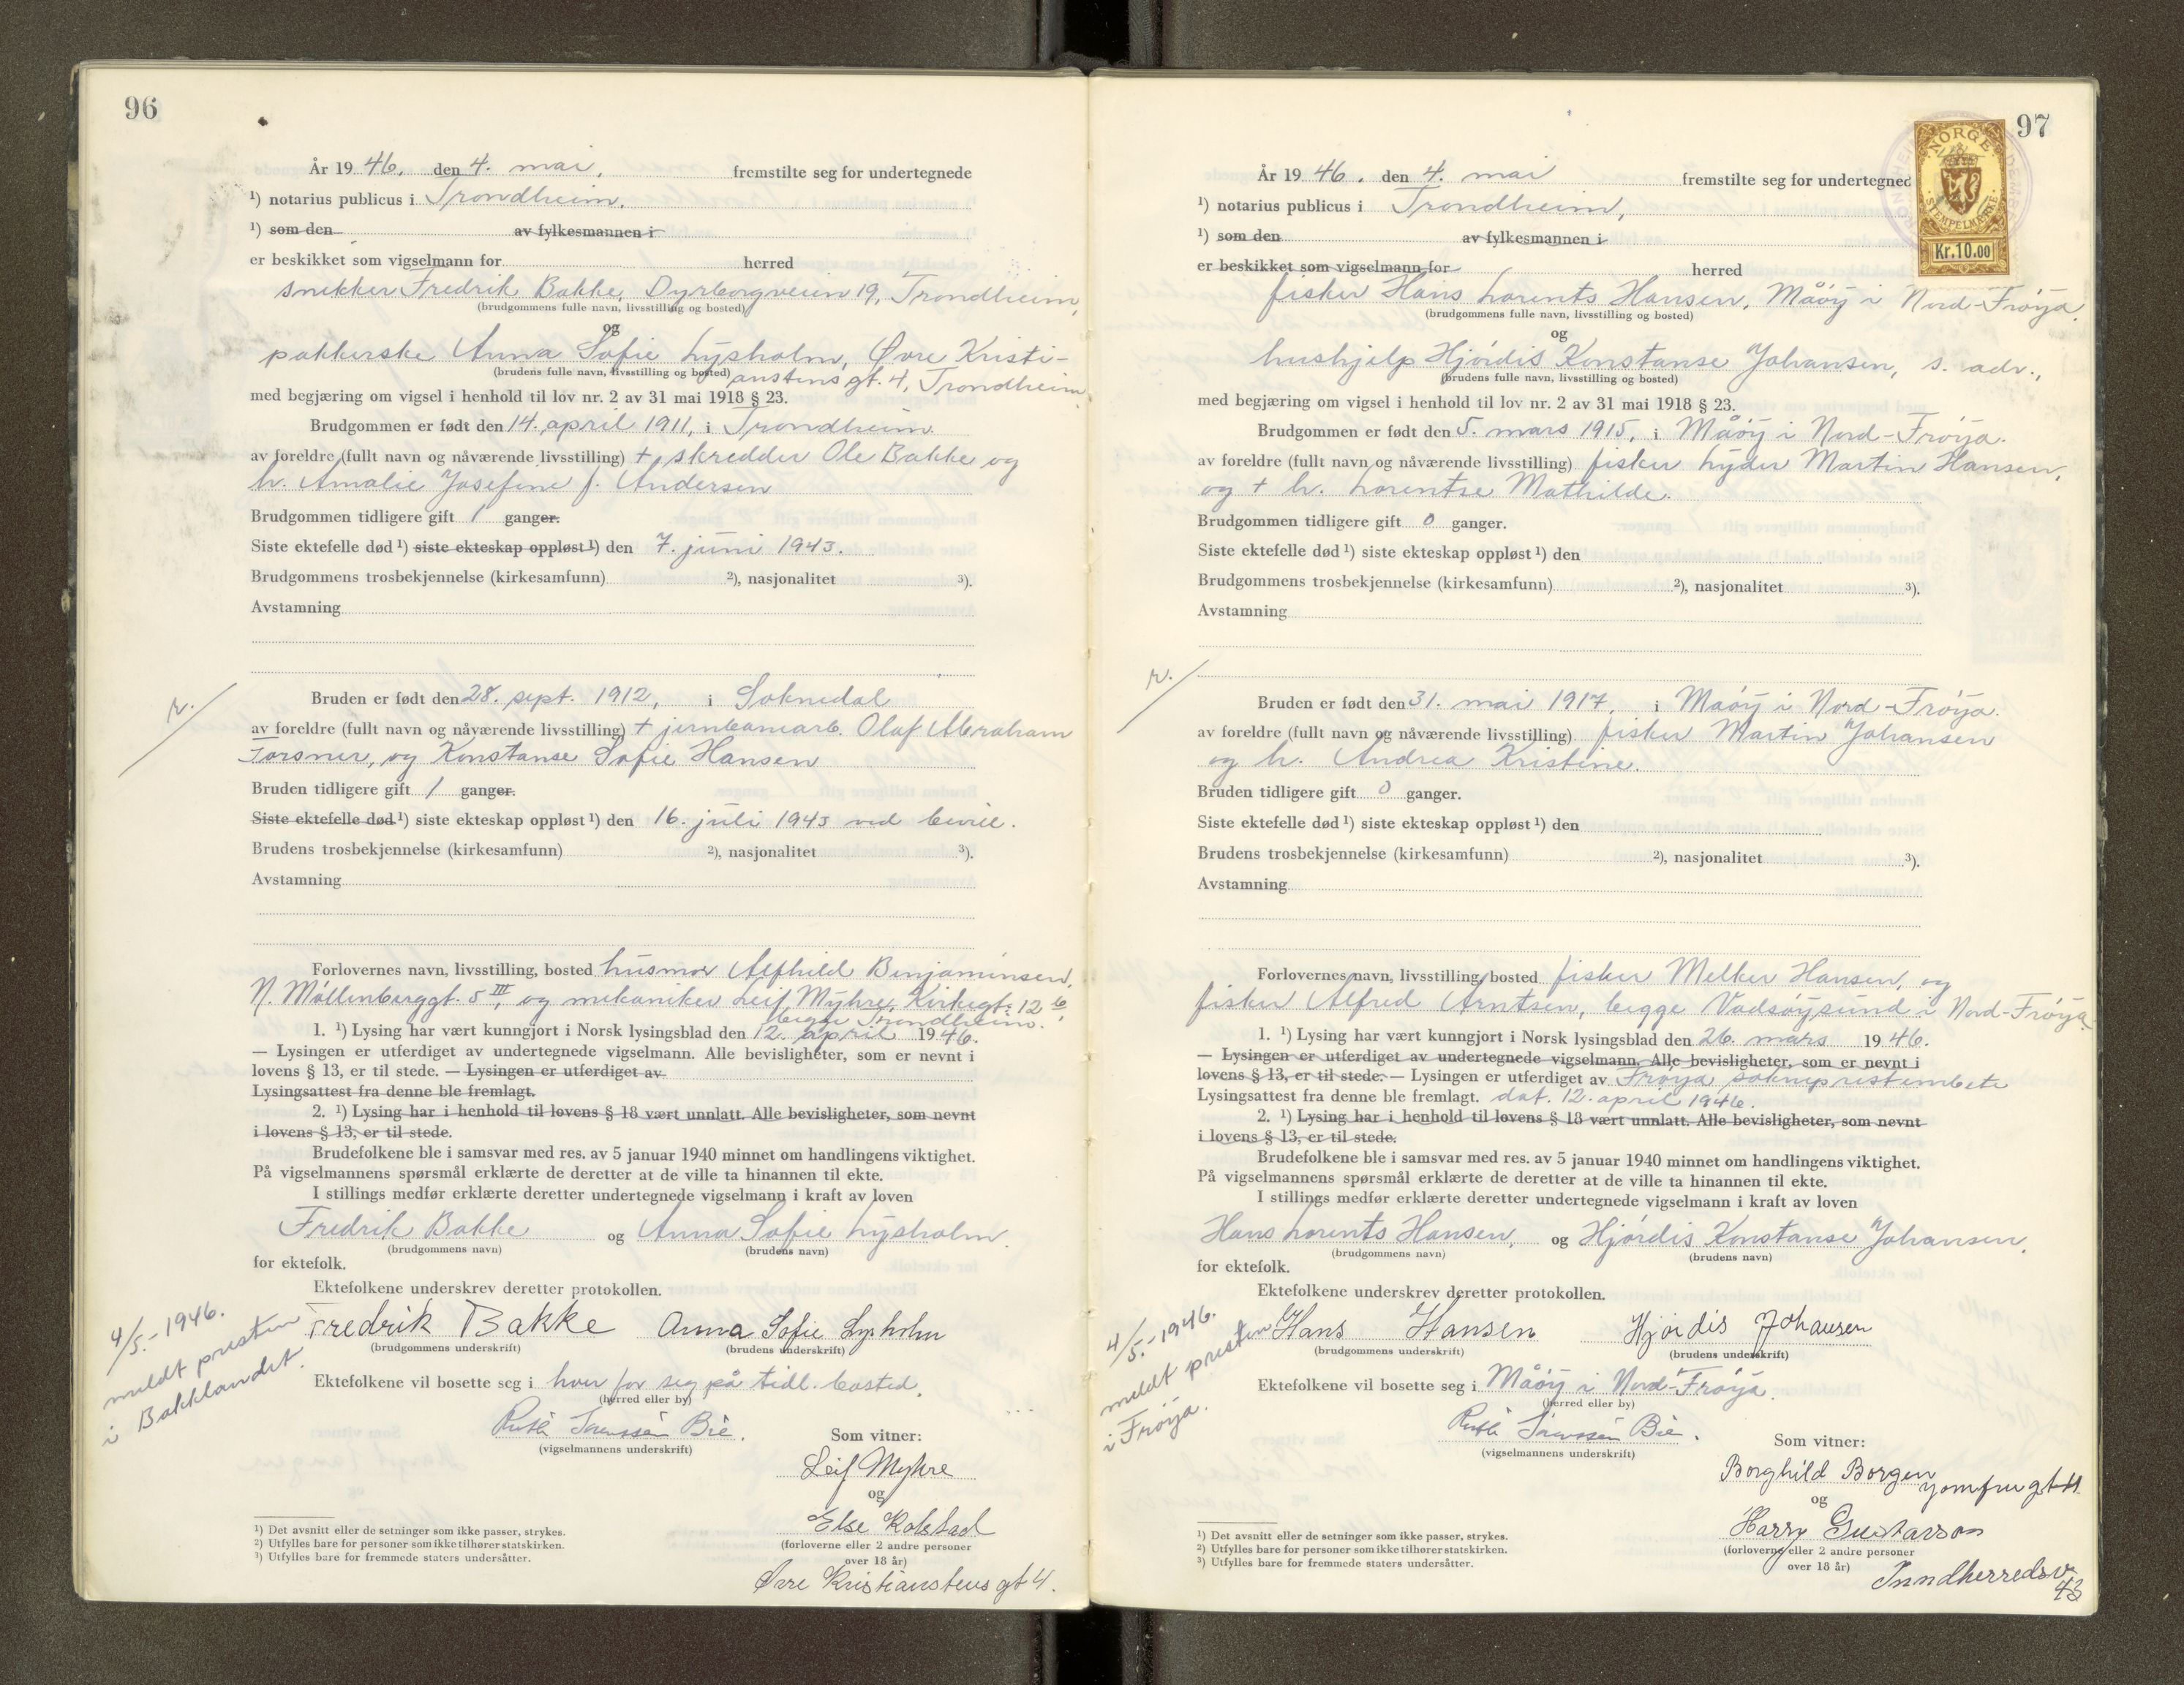 96
År 1946. den 4. mai. fremstilte seg for undertegnede
¹) notarius publicus i Trondheim.
¹) som den av fylkesmannen i
er beskikket som vigselmann for herred
snekker Fredrik Bakke, Dyrborgveien 19, Trondheim,
(brudgommens fulle navn, livsstilling og bosted)
og
pakkerske Anna Sofie Lysholm, Øvre Kristi-
(brudens fulle navn, livsstilling og bosted) anstens gt. 4, Trondheim
med begjæring om vigsel i henhold til lov nr. 2 av 31 mai 1918 § 23.
Brudgommen er født den 14. april 1911, i Trondheim
av foreldre (fullt navn og nåværende livsstilling) + skredder Ole Bakke og
h. Amalie Josefine f. Andersen
Brudgommen tidligere gift 1 ganger.
Siste ektefelle død ¹) siste ekteskap oppløst ¹) den 7. juni 1943.
Brudgommens trosbekjennelse (kirkesamfunn) ²), nasjonalitet ³).
Avstamning
Bruden er født den 28. sept. 1912, i Soknedal
av foreldre (fullt navn og nåværende livsstilling) + jernbanearb. Olaf Abraham
Forsner, og Konstanse Sofie Hansen
Bruden tidligere gift 1 ganger.
Siste ektefelle død ¹) siste ekteskap oppløst ¹) den 16. juli 1943 ved bevill.
Brudens trosbekjennelse (kirkesamfunn) ²), nasjonalitet ³).
Avstamning
Forlovernes navn, livsstilling, bosted husmor Alfhild Benjaminsen,
N. Møllenberggt. 5 III, og mekaniker Leif Myhre, Kirkegt. 12 b,
begge Trondheim.
1. ¹) Lysing har vært kunngjort i Norsk lysingsblad den 12. april 1946.
— Lysingen er utferdiget av undertegnede vigselmann. Alle bevisligheter, som er nevnt i
lovens § 13, er til stede. — Lysingen er utferdiget av
Lysingsattest fra denne ble fremlagt.
2. ¹) Lysing har i henhold til lovens § 18 vært unnlatt. Alle bevisligheter, som nevnt
i lovens § 13, er til stede.
Brudefolkene ble i samsvar med res. av 5 januar 1940 minnet om handlingens viktighet.
På vigselmannens spørsmål erklærte de deretter at de ville ta hinannen til ekte.
I stillings medfør erklærte deretter undertegnede vigselmann i kraft av loven
Fredrik Bakke og Anna Sofie Lysholm.
(brudgommens navn) (brudens navn)
for ektefolk.
Ektefolkene underskrev deretter protokollen.
4/5.-1946.
meldt presten
i Bakklandet.
Fredrik Bakke Anna Sofie Lysholm
(brudgommens underskrift) (brudens underskrift)
Ektefolkene vil bosette seg i hver for seg på tidl. bosted.
(herred eller by)
Ruth Sørenssen Bie.
(vigselmannens underskrift)
Som vitner:
Leif Myhre
og
Else Kolstad
(forloverne eller 2 andre personer
over 18 år)
Øvre Kristianstens gt 4.
¹) Det avsnitt eller de setninger som ikke passer, strykes.
²) Utfylles bare for personer som ikke tilhører statskirken.
³) Utfylles bare for fremmede staters undersåtter.
97
NORGE
STEMPELMERKE
Kr. 10.00
År 1946. den 4. mai fremstilte seg for undertegnede
¹) notarius publicus i Trondheim,
¹) som den av fylkesmannen i
er beskikket som vigselmann for herred
fisker Hans Lorents Hansen, Måøy i Nord-Frøya.
(brudgommens fulle navn, livsstilling og bosted)
og
hushjelp Hjørdis Konstanse Johansen, s. adr.,
(brudens fulle navn, livsstilling og bosted)
med begjæring om vigsel i henhold til lov nr. 2 av 31 mai 1918 § 23.
Brudgommen er født den 5. mars 1915, i Måøy i Nord-Frøya.
av foreldre (fullt navn og nåværende livsstilling) fisker Lyder Martin Hansen,
og + h. Lorentse Mathilde.
Brudgommen tidligere gift 0 ganger.
Siste ektefelle død ¹) siste ekteskap oppløst ¹) den
Brudgommens trosbekjennelse (kirkesamfunn) ²), nasjonalitet ³).
Avstamning
Bruden er født den 31. mai 1917, i Måøy i Nord-Frøya.
av foreldre (fullt navn og nåværende livsstilling) fisker Martin Johansen
og h. Andrea Kristine.
Bruden tidligere gift 0 ganger.
Siste ektefelle død ¹) siste ekteskap oppløst ¹) den
Brudens trosbekjennelse (kirkesamfunn) ²), nasjonalitet ³).
Avstamning
Forlovernes navn, livsstilling, bosted fisker Melker Hansen, og
fisker Alfred Arntsen, begge Vadsøysund i Nord-Frøya.
1. ¹) Lysing har vært kunngjort i Norsk lysingsblad den 26. mars 1946.
— Lysingen er utferdiget av undertegnede vigselmann. Alle bevisligheter, som er nevnt i
lovens § 13, er til stede. — Lysingen er utferdiget av Frøya sokneprestembete
Lysingsattest fra denne ble fremlagt. dat. 12. april 1946.
2. ¹) Lysing har i henhold til lovens § 18 vært unnlatt. Alle bevisligheter, som nevnt
i lovens § 13, er til stede.
Brudefolkene ble i samsvar med res. av 5 januar 1940 minnet om handlingens viktighet.
På vigselmannens spørsmål erklærte de deretter at de ville ta hinannen til ekte.
I stillings medfør erklærte deretter undertegnede vigselmann i kraft av loven
Hans Lorents Hansen, og Hjørdis Konstanse Johansen,
(brudgommens navn) (brudens navn)
for ektefolk.
Ektefolkene underskrev deretter protokollen.
4/5.-1946.
meldt presten
i Frøya.
Hans Hansen Hjørdis Johansen
(brudgommens underskrift) (brudens underskrift)
Ektefolkene vil bosette seg i Måøy i Nord-Frøya.
(herred eller by)
Ruth Sørenssen Bie.
(vigselmannens underskrift)
Som vitner:
Borghild Borgen
Jomfrugt 11
og
Harry Gustavson
(forloverne eller 2 andre personer
over 18 år)
Inndherredsv.
43
¹) Det avsnitt eller de setninger som ikke passer, strykes.
²) Utfylles bare for personer som ikke tilhører statskirken.
³) Utfylles bare for fremmede staters undersåtter.